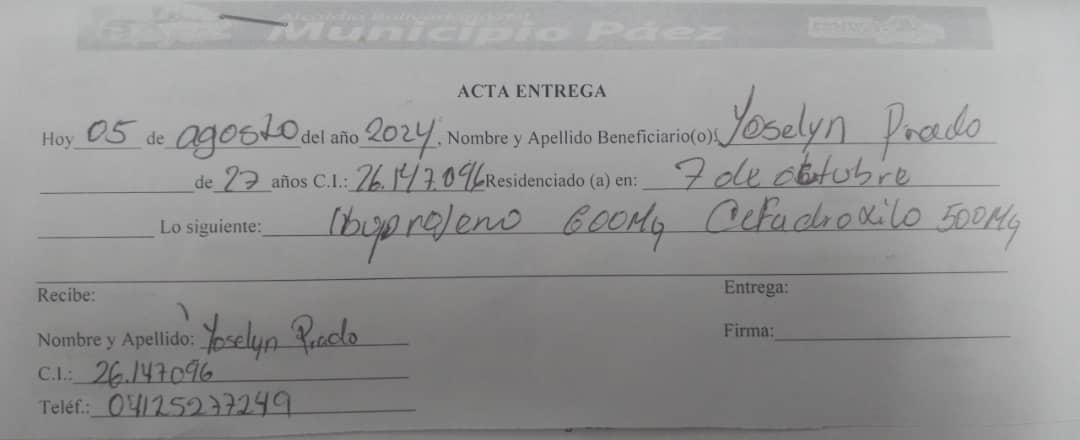 Alcaldía Bolivariana del
Municipio Páez
ACTA ENTREGA
Hoy 05 de agosto del año 2024, Nombre y Apellido Beneficiario(o): Yoselyn Prado
de 27 años C.I.: 26.147.096 Residenciado (a) en: 7 de octubre
Lo siguiente: Ibuprofeno 600Mg Cefadroxilo 500Mg
Recibe:
Entrega:
Nombre y Apellido: Yoselyn Prado
Firma:
C.I.: 26.147096
Teléf.: 04125277249